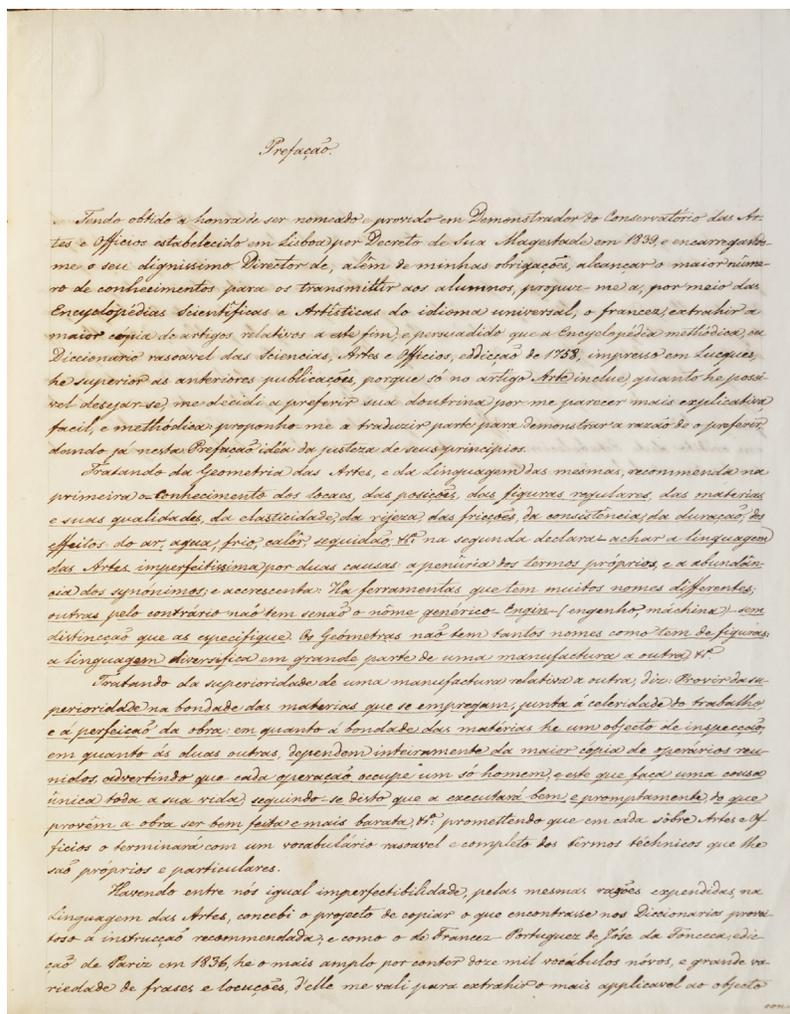 Prefação.
Tendo obtido a honra de ser nomeado e provido em Demonstrador do Conservatório das Ar-
tes e Officios estabelecido em Lisboa por Decreto de Sua Magestade em 1839, e encarregando-
me o seu dignissimo Director de, alêm de minhas obrigações, alcançar o maior núme-
ro de conhecimentos para os transmittir aos alumnos, propuz-me a, por meio das
Encyclopédias Scientíficas e Artísticas do idioma universal, o francez, extrahir a
maior cópia de artigos relativos a este fim, e persuadido que a Encyclopédia methódica, ou
Diccionário rasoavel das Sciencias, Artes e Officios, edicção de 1758, impresso em Lucques,
he superior as anteriores publicações, porque só no artigo Arte inclue quanto he possi-
vel desejar-se, me decidi a preferir sua doutrina por me parecer mais explicativa,
facil, e methódica: proponho-me a traduzir parte para demonstrar a razão de o preferir,
dando já nesta Prefação idéa da justeza de seus princípios.
Tratando da Geometria das Artes, e da Linguagem das mesmas, recommenda na
primeira o conhecimento dos locaes, das posições, das figuras regulares, das matérias
e suas qualidades, da elasticidade, da rijeza, das fricções, da consistência, da duração, dos
effeitos do ar, agua, frio, calôr, seguidão, &ª. na segunda declara - achar a linguagem
das Artes imperfeitissima por duas causas: a penúria dos termos próprios, e a abundân-
cia dos synónimos; e accrescenta: Ha ferramentas que tem muitos nomes differentes;
outras pelo contrário naõ tem senaõ o nôme genérico - Engin - (engenho, máchina) - sem
distincção que as especifique. Os Geómetras naõ tem tantos nomes como tem de figuras:
a linguagem diversifica em grande parte de uma manufactura a outra &ª.
Tratando da superioridade de uma manufactura relativa a outra, diz: Provir da su-
perioridade na bondade das matérias que se empregam, junta á celeridade do trabalho
e á perfeição da obra: em quanto á bondade das matérias he um objecto de inspecção;
em quanto ás duas outras, dependem inteiramente da maior cópia de operários reu-
nidos, advertindo que cada operação occupe um só homem, e este que faça uma cousa
única toda a sua vida, seguindo-se disto que a executará bem e promptamente, do que
provêm a obra ser bem feita e mais barata, &ª. promettendo que em cada sôbre Artes e Of-
ficios o terminará com um vocabulário rasoavel e completo dos termos téchnicos que lhe
saõ próprios e particulares.
Havendo entre nós igual imperfectibilidade, pelas mesmas razões expendidas, na
Linguagem das Artes, concebi o projecto de copiar o que encontrasse nos Diccionarios provei-
toso á instrucção recommendada, e como o de Francez-Portuguez de Jóse da Fonceca, edic-
ção de Pariz em 1836, he o mais amplo por conter doze mil vocábulos nóvos, e grande va-
riedade de frases e locuções, d'elle me vali para extrahir o mais applicavel ao objecto
con-